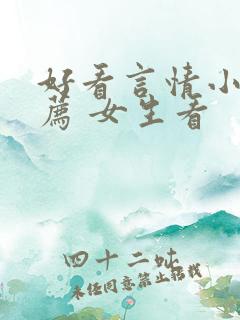 好看言情小
薦 女生看
四十二吙
未经同意禁止转载